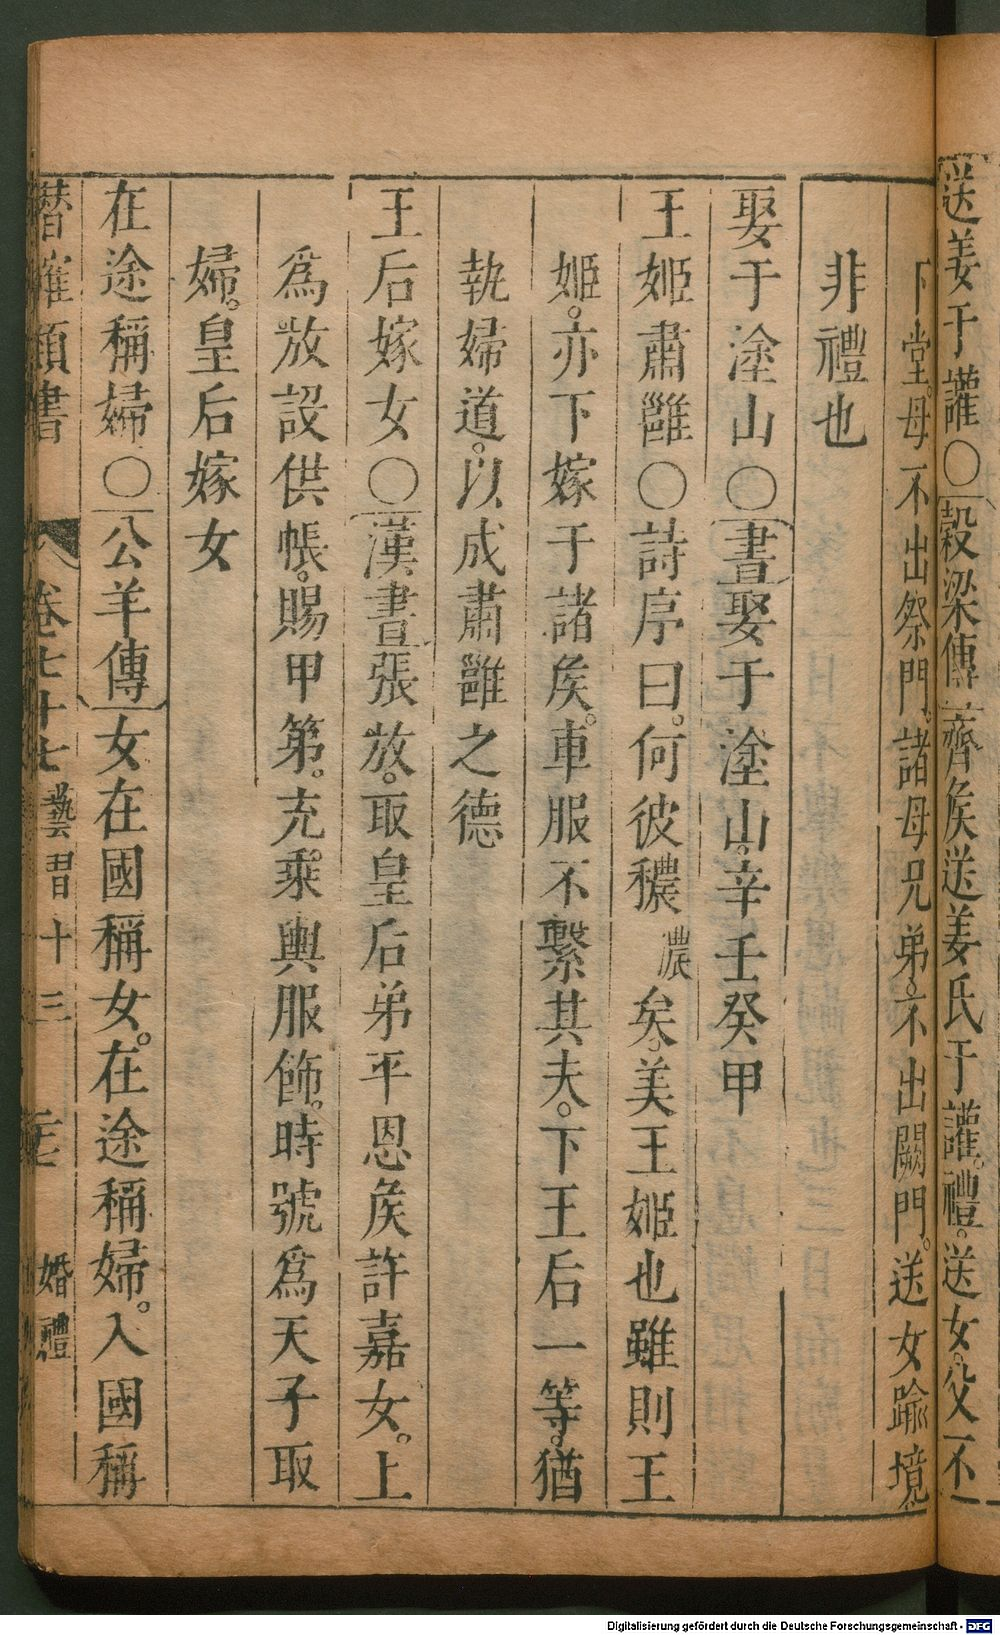 送姜于讙〇穀梁傳齊矦送姜氏于讙。禮。送女。父不
下堂。母不出祭門。諸母兄弟。不出闕門。送女踰境。
非禮也
娶于塗山〇書娶于塗山。辛壬癸甲
王姬肅雝〇詩序曰。何彼穠濃矣。美王姬也雖則王
姬。亦下嫁于諸矦。車服不繫其夫。下王后一等。猶
執婦道。以成肅雝之德
王后嫁女〇漢書張放。取皇后弟平恩矦許嘉女。上
爲放設供帳。賜甲第。充乘輿服飾。時號爲天子取
婦。皇后嫁女
在途稱婦〇公羊傳女在國稱女。在途稱婦。入國稱
潛確類書 卷七十七 藝習十三 婚禮
Digitalisierung gefördert durch die Deutsche Forschungsgemeinschaft - DFG